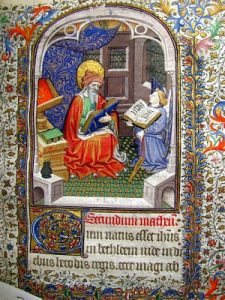 Secundum matheū.
Cum natus esset ihūs
in bethleem iude in di
ebus herodis regis. ecce magi ab